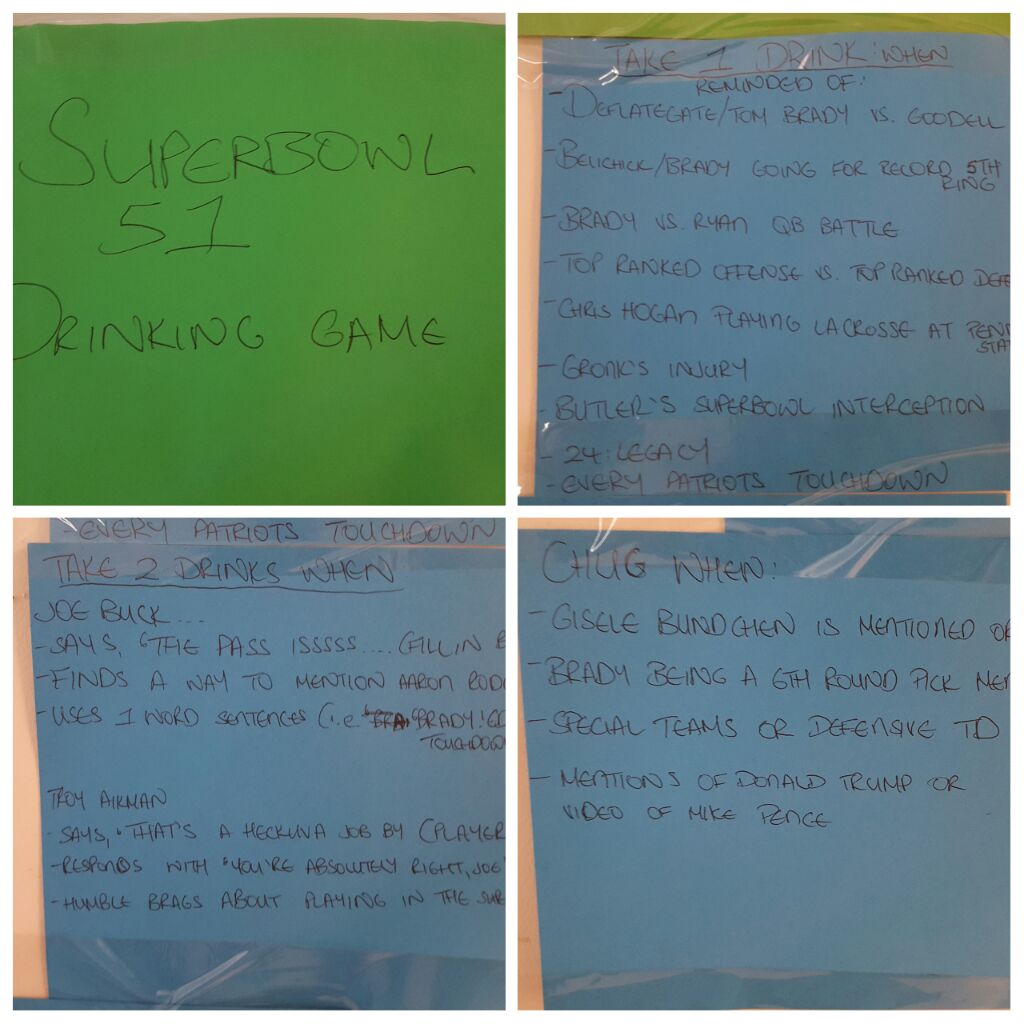 SUPERBOWL
51
DRINKING GAME
TAKE 1 DRINK: WHEN
REMINDED OF:
- DEFLATEGATE/TOM BRADY VS. GOODELL
- BELICHICK/BRADY GOING FOR RECORD 5TH
RING
- BRADY VS. RYAN QB BATTLE
- TOP RANKED OFFENSE VS. TOP RANKED DEFE
- CHRIS HOGAN PLAYING LACROSSE AT PENN
STAT
- GRONK'S INJURY
- BUTLER'S SUPERBOWL INTERCEPTION
- 24: LEGACY
- EVERY PATRIOTS TOUCHDOWN
- EVERY PATRIOTS TOUCHDOWN
TAKE 2 DRINKS WHEN
JOE BUCK...
- SAYS, "THE PASS ISSSSS.... (FILL IN B
- FINDS A WAY TO MENTION AARON ROD
- USES 1 WORD SENTENCES (i.e. "BRADY! GO
TOUCHDOW
TROY AIKMAN
- SAYS, "THAT'S A HECKUVA JOB BY (PLAYER
- RESPONDS WITH "YOU'RE ABSOLUTELY RIGHT, JOE"
- HUMBLE BRAGS ABOUT PLAYING IN THE SUP
CHUG WHEN:
- GISELE BUNDCHEN IS MENTIONED OR
- BRADY BEING A 6TH ROUND PICK MEN
- SPECIAL TEAMS OR DEFENSIVE TD
- MENTIONS OF DONALD TRUMP OR
VIDEO OF MIKE PENCE